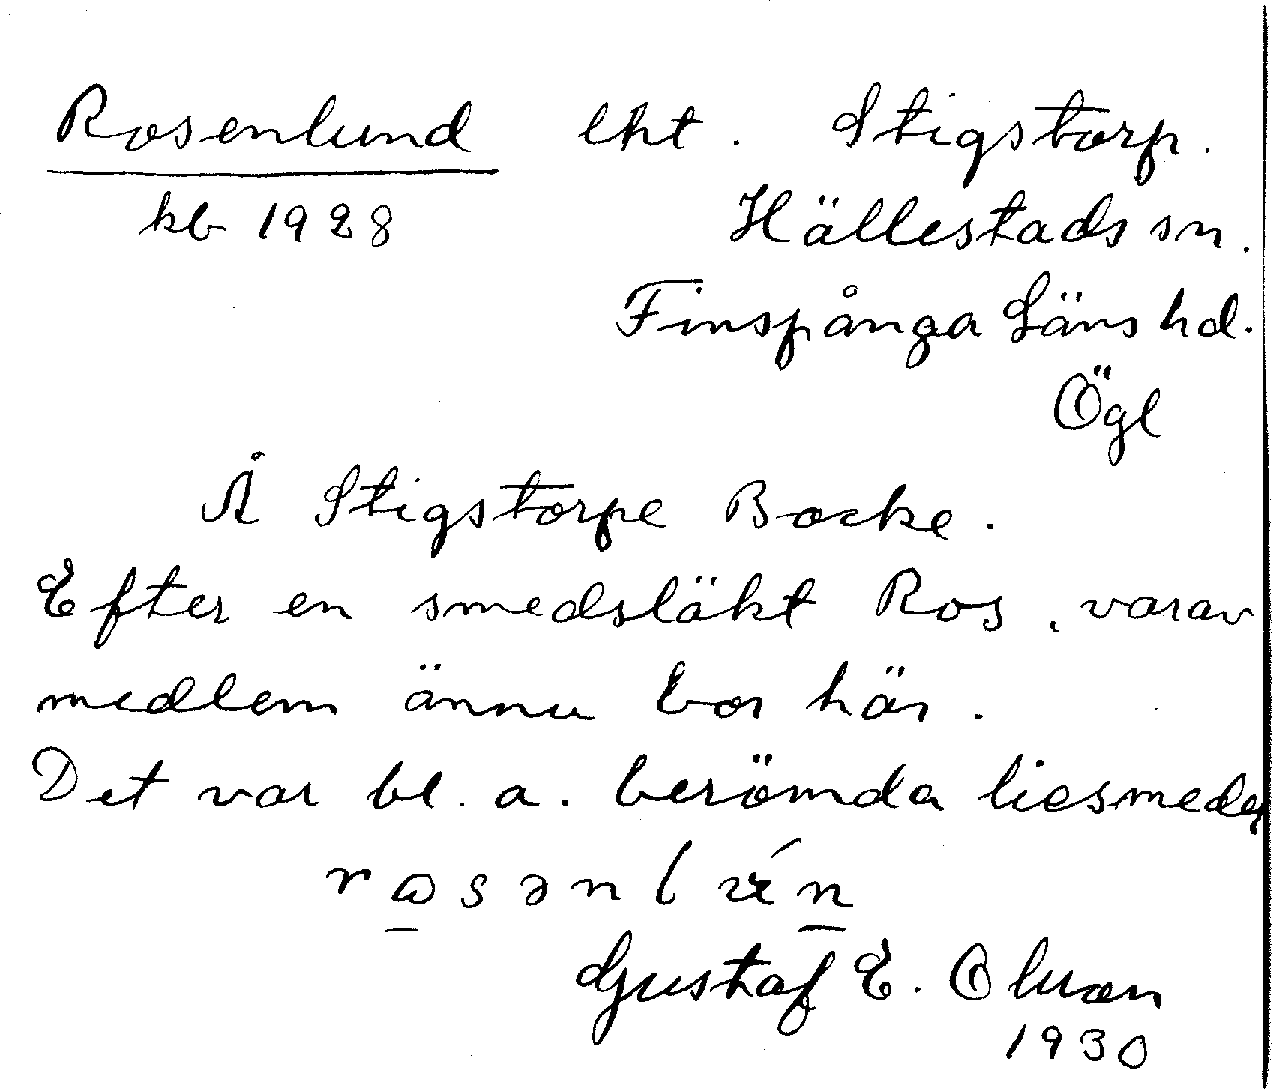 Rosenlund lht. Stigstorp.
kb 1928 Hällestads sn.
Finspånga Läns hd.
Ögl
Å Stigstorpe Backe.
Efter en smedsläkt Ros, varav
medlem ännu bor här.
Det var bl. a. berömda liesmeder
Gustaf E. Olsson
1930